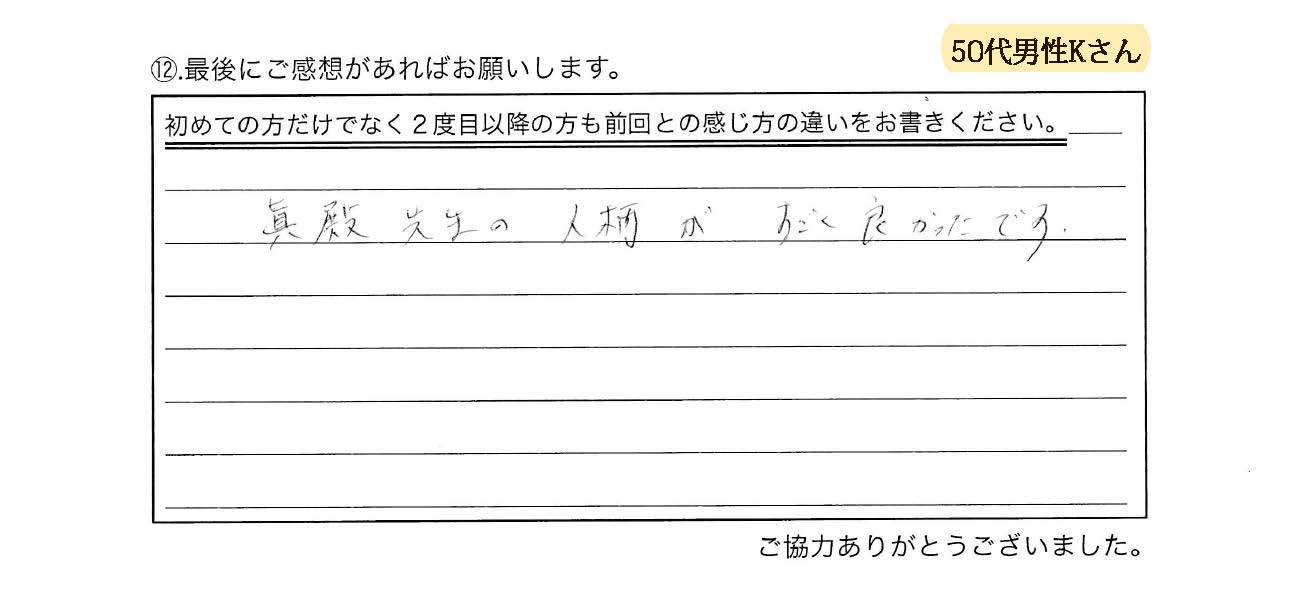 50代男性Kさん
⑫.最後にご感想があればお願いします。
初めての方だけでなく２度目以降の方も前回との感じ方の違いをお書きください。
眞殿先生の人柄がすごく良かったです.
ご協力ありがとうございました。